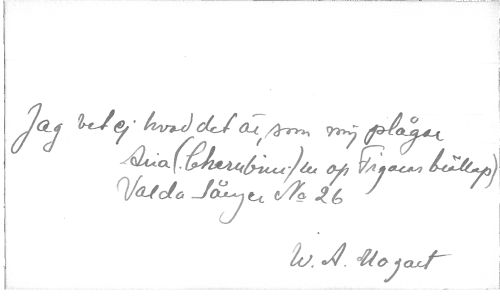 Jag vet ej hvad det är, som mig plågar
Aria (Cherubini:) ur op Figaros bröllop)
Valda Sånger No 26
W. A. Mozart